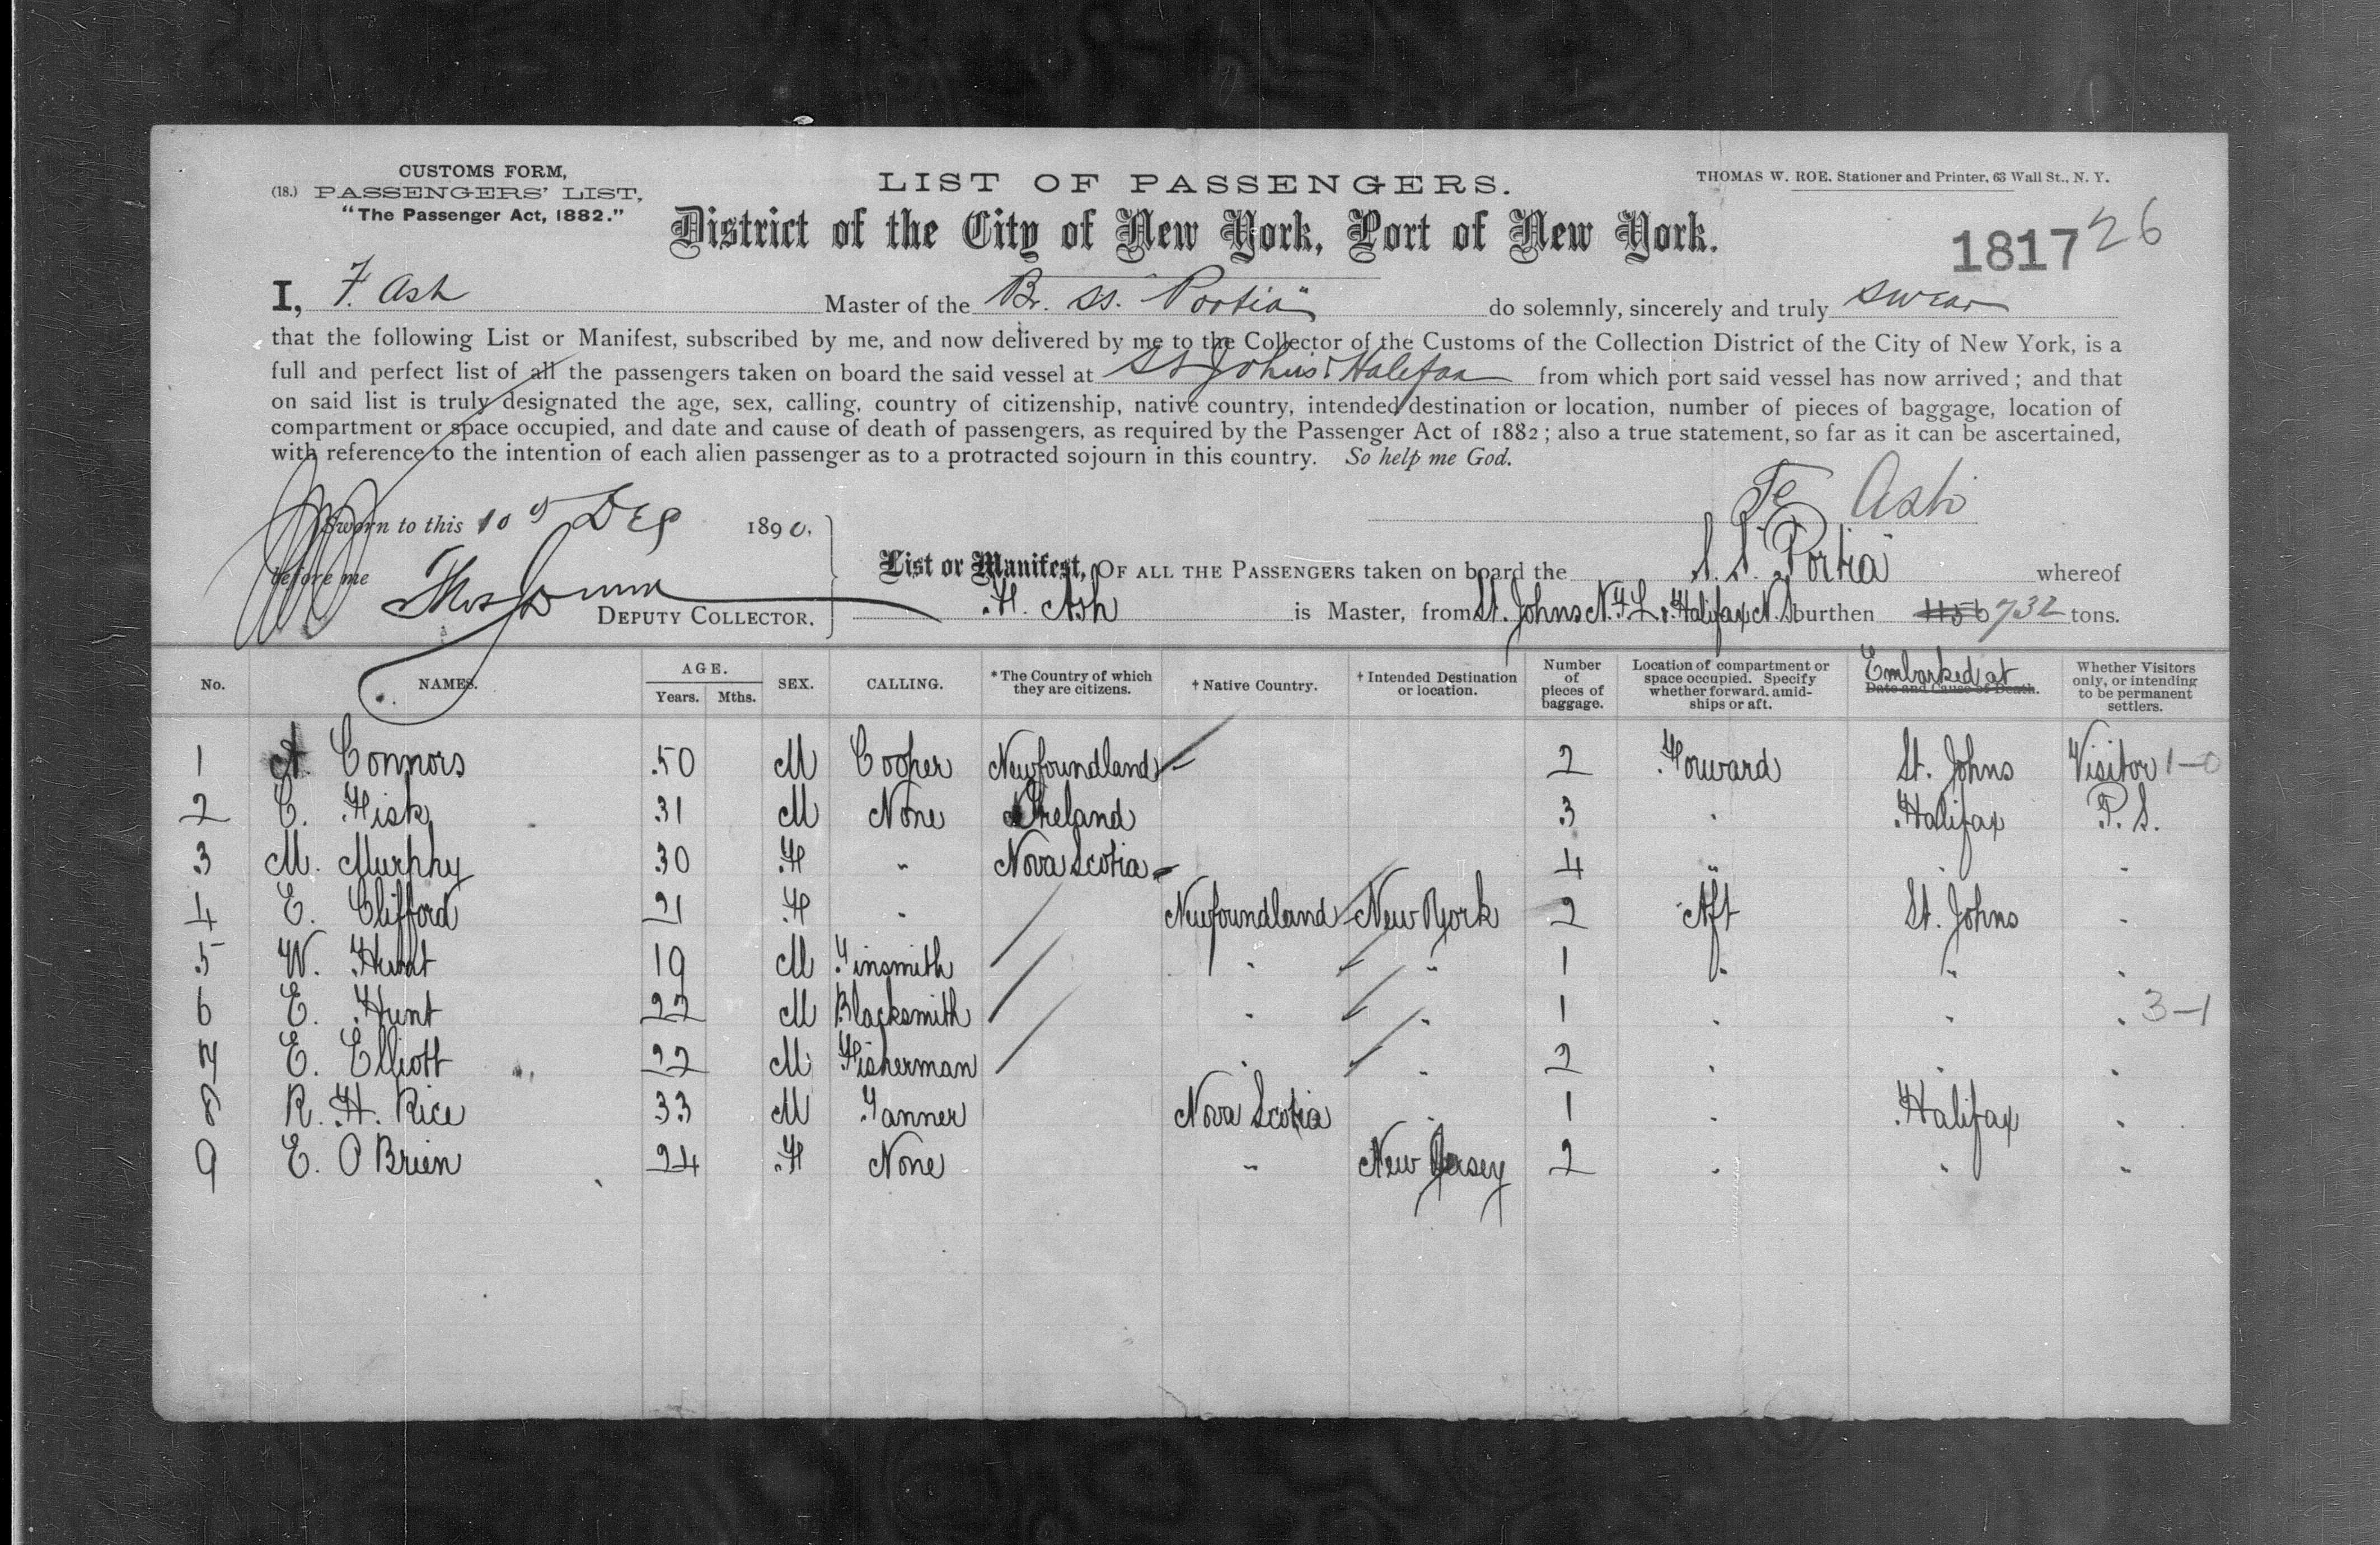 CUSTOMS FORM,
(18.) PASSENGERS' LIST,
"The Passenger Act, 1882."
LIST OF PASSENGERS.
THOMAS W. ROE, Stationer and Printer, 63 Wall St., N. Y.
District of the City of New York, Port of New York.
1817 26
I, F. Ash Master of the Br. SS. "Portia" do solemnly, sincerely and truly swear
that the following List or Manifest, subscribed by me, and now delivered by me to the Collector of the Customs of the Collection District of the City of New York, is a
full and perfect list of all the passengers taken on board the said vessel at St Johns & Halifax from which port said vessel has now arrived; and that
on said list is truly designated the age, sex, calling, country of citizenship, native country, intended destination or location, number of pieces of baggage, location of
compartment or space occupied, and date and cause of death of passengers, as required by the Passenger Act of 1882; also a true statement, so far as it can be ascertained,
with reference to the intention of each alien passenger as to a protracted sojourn in this country. So help me God.
Ash
Sworn to this 10th Sep 1890.
before me
DEPUTY COLLECTOR.
List or Manifest, OF ALL THE PASSENGERS taken on board the S.S. "Portia" whereof
F. Ash is Master, from St. Johns N.F.L. & Halifax N.S burthen 1156 732 tons.
No. NAMES. AGE. Years. Mths. SEX. CALLING. *The Country of which they are citizens. †Native Country. †Intended Destination or location. Number of pieces of baggage. Location of compartment or space occupied. Specify whether forward, amidships or aft. Embarked at Date and Cause of Death. Whether Visitors only, or intending to be permanent settlers.
1 A. Connors 50 M Cooper Newfoundland 2 Forward St. Johns Visitor 1-0
2 C. Fisk 31 M None Ireland 3 " Halifax P. S.
3 M. Murphy 30 F " Nova Scotia 4 " " "
4 E. Clifford 21 F " Newfoundland New York 2 Aft St. Johns "
5 W. Hunt 19 M Tinsmith " " 1 " " "
6 E. Hunt 22 M Blacksmith " " 1 " " " 3-1
7 E. Elliott 22 M Fisherman " " 2 " " "
8 R. H. Rice 33 M Tanner Nova Scotia " 1 " Halifax "
9 E. O Brien 24 F None " New Jersey 2 " " "